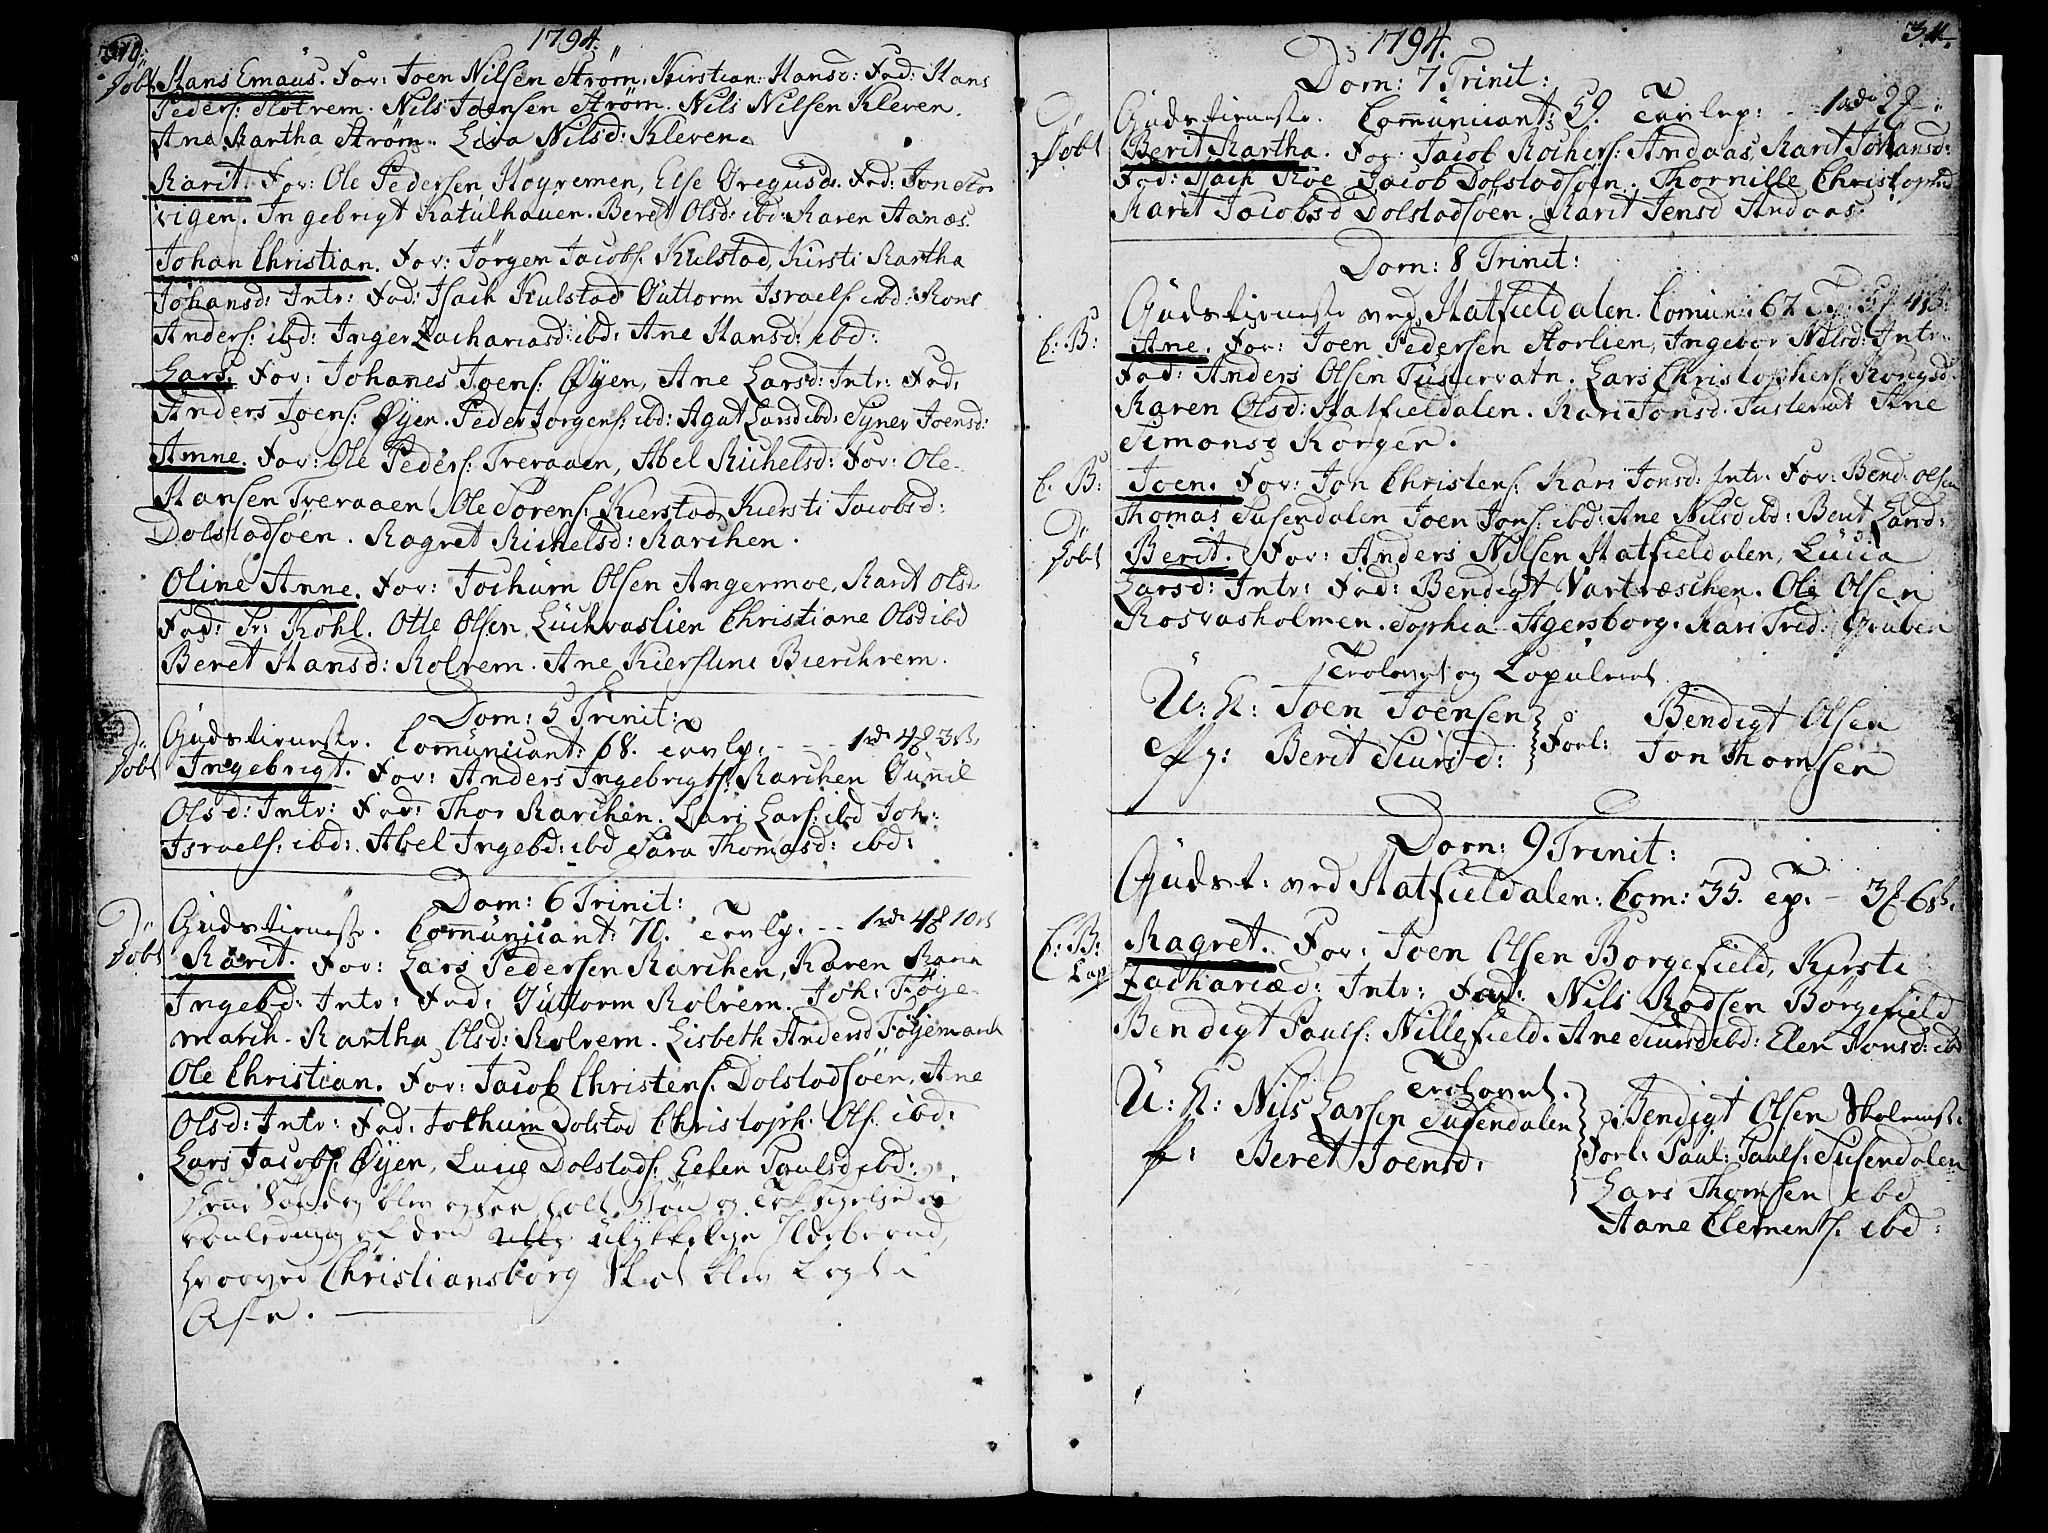 1794.
Døbt Hans Emaus. For: Joen Nilsen Strøm, Kirstian: Hansd: Fad: Hans
Peders: Slotrem. Nils Joensen Strøm. Nils Nilsen Kleven.
Ane Martha Strøm. Lisa Nilsd: Kleven.
Marit. For: Ole Pedersen Høyremen, Else Gregusd. Fad: Jon Stor
vigen. Ingebrigt Katulhauen. Beret Olsd: ibd: Maren Aanæs.
Johan Christian. For: Jørgen Jacobs: Kulstad, Kirsti Martha
Johansd: Intr: Fad: Isach Kulstad Guttorm Israels: ibd: Mons
Anders: ibd: Inger Zachariasd: ibd: Ane Hansd: ibd:
Lars. For: Johanes Joens: Øyen, Ane Larsd: Intr: Fad:
Anders Joens: Øyen. Peder Jorgens: ibd: Agat Larsd ibd: Syner Joensd:
Anne. For: Ole Peders: Treraaen, Abel Michelsd: For: Ole
Hansen Treraaen, Ole Sørens: Kierstad, Kiersti Jacobsd:
Dolstadsøen. Magret Michelsd: Marchen.
Oline Anne. For: Jochum Olsen Angermoe, Marit Olsd.
Fad: Fr: Kohl. Otte Olsen Luchvaslien Christiane Olsd ibd
Beret Hansd: Molrem. Ane Kierstine Bierchrem.
Dom: 5 Trinit:
Gudstieneste. Comunicant: 68. 1rd 4 3s.
Døbt Ingebrigt. For: Anders Ingebrigts: Marchen Gunil
Olsd: Intr: Fad: Thor Marchen. Lars Lars: ibd Joh:
Israels: ibd: Abel Ingebd: ibd Sara Thomasd: ibd:
Dom: 6 Trinit:
Gudstieneste. Comunicant: 70. 1rd 4 10s
Døbt Marit. For: Lars Pedersen Marchen, Maren
Ingebd: Intr: Fad: Guttorm Molrem. Joh: Føye
march. Martha Olsd: Molrem. Lisbeth Andersd Føyemark
Ole Christian. For: Jacob Christens: Dolstadsøen, Ane
Olsd: Intr: Fad: Jochum Dolstad Christoph: Ols: ibd:
Lars Jacobs: Øyen, Lucie Dolstads: Eelen Paulsd ibd:
Søndag blev holt Bøn og Taksigelse i
anledning af den ulykkelige Ildebrand,
hvorved Christiansborg Slot blev Lagt i
Aske.
1794.
34.
Dom: 7 Trinit:
Gudstieneste. Comunicant: 59. 1rd 2
Døbt Berit Martha. For: Jacob Mochers: Andaas, Marit Johansd:
Fad: Isach Moe Jacob Dolstadsøen. Thornille Christophd
Marit Jacobsd Dolstadsøen. Marit Jensd Andaas.
Dom: 8 Trinit:
Gudstieneste ved Hatfieldalen. Comun: 62
C: B: Ane. For: Joen Pedersen Storlien, Ingebor Nilsd: Intr:
Fad: Anders Olsen Tustervatn. Lars Christophers: Kongsd:
Maren Olsd: Hatfieldalen. Kari Jonsd. Tustervat Ane
Simonsd Korgen.
C. B: Joen. For: Jon Christens: Kari Jonsd: Intr. For: Bend. Olsen
Thomas Susendalen Joen Jons: ibd: Ane Nilsd ibd:
Døbt Berit. For: Anders Nilsen Hatfieldalen, Lucia
Larsd: Intr: Fad: Bendigt Vartræschen. Ole Olsen
Rosvasholmen. Sophia Agersborg. Kari Fred: Gruben
Trolovet og Copuleret
U: K: Joen Joensen
Pg: Berit Siursd:
Forl: Bendigt Olsen
Jon Thomsen
Dom: 9 Trinit:
Gudst: ved Hatfieldalen. Com: 35. 3 6s.
C: B: Magret. For: Joen Olsen Borgefield, Kirsti
Zachariæd: Intr: Fad: Nils Madsen Børgefield
Bendigt Pauls: Nillefield. Ane Siursd ibd: Elen Jonsd: ibd
Trolovet.
U: K: Nils Larsen Susendalen
P: Beret Joensd:
Bendigt Olsen Skolemst:
Forl: Paul: Pauls: Susendalen
Lars Thomsen ibd
Aane Clements: ibd: